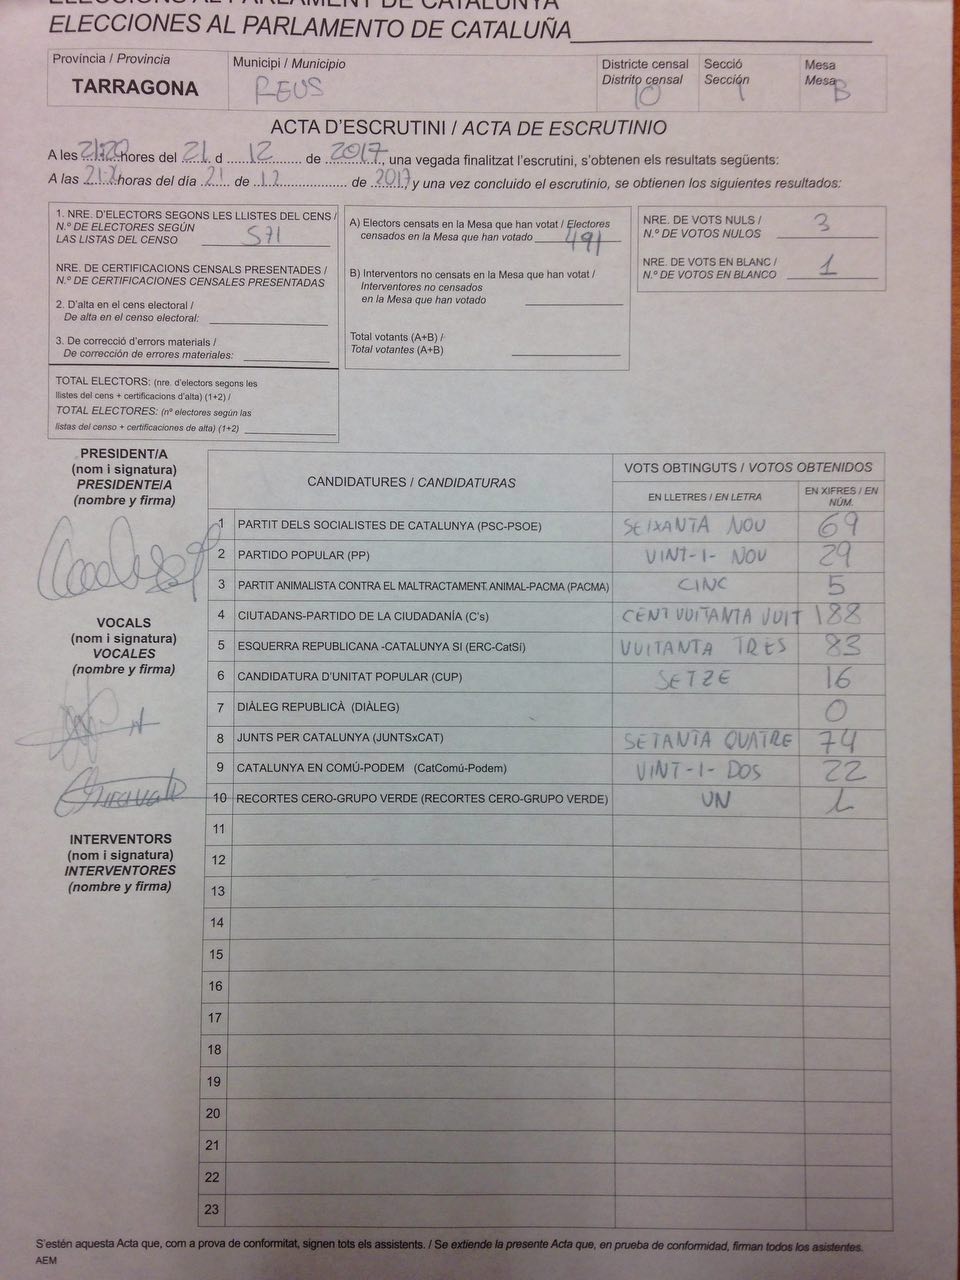 ELECCIONS AL PARLAMENT DE CATALUNYA
ELECCIONES AL PARLAMENTO DE CATALUÑA
Província / Provincia
TARRAGONA
Municipi / Municipio
REUS
Districte censal
Distrito censal
10
Secció
Sección
1
Mesa
Mesa
B
ACTA D'ESCRUTINI / ACTA DE ESCRUTINIO
A les 21:20 hores del 21 d 12 de 2017, una vegada finalitzat l'escrutini, s'obtenen els resultats següents:
A las horas del día 21 de 12 de 2017 y una vez concluido el escrutinio, se obtienen los siguientes resultados:
1. NRE. D'ELECTORS SEGONS LES LLISTES DEL CENS /
N.º DE ELECTORES SEGÚN
LAS LISTAS DEL CENSO 571
NRE. DE CERTIFICACIONS CENSALS PRESENTADES /
N.º DE CERTIFICACIONES CENSALES PRESENTADAS
2. D'alta en el cens electoral /
De alta en el censo electoral:
3. De correcció d'errors materials /
De corrección de errores materiales:
TOTAL ELECTORS: (nre. d'electors segons les
llistes del cens + certificacions d'alta) (1+2) /
TOTAL ELECTORES: (nº electores según las
listas del censo + certificaciones de alta) (1+2)
A) Electors censats en la Mesa que han votat / Electores
censados en la Mesa que han votado 491
B) Interventors no censats en la Mesa que han votat /
Interventores no censados
en la Mesa que han votado
Total votants (A+B) /
Total votantes (A+B)
NRE. DE VOTS NULS /
N.º DE VOTOS NULOS 3
NRE. DE VOTS EN BLANC /
N.º DE VOTOS EN BLANCO 1
PRESIDENT/A
(nom i signatura)
PRESIDENTE/A
(nombre y firma)
VOCALS
(nom i signatura)
VOCALES
(nombre y firma)
INTERVENTORS
(nom i signatura)
INTERVENTORES
(nombre y firma)
CANDIDATURES / CANDIDATURAS
VOTS OBTINGUTS / VOTOS OBTENIDOS
EN LLETRES / EN LETRA
EN XIFRES / EN
NÚM.
1 PARTIT DELS SOCIALISTES DE CATALUNYA (PSC-PSOE) SEIXANTA NOU 69
2 PARTIDO POPULAR (PP) VINT-I-NOU 29
3 PARTIT ANIMALISTA CONTRA EL MALTRACTAMENT ANIMAL-PACMA (PACMA) CINC 5
4 CIUTADANS-PARTIDO DE LA CIUDADANÍA (C's) CENT VUITANTA VUIT 188
5 ESQUERRA REPUBLICANA -CATALUNYA SI (ERC-CatSí) VUITANTA TRES 83
6 CANDIDATURA D'UNITAT POPULAR (CUP) SETZE 16
7 DIÀLEG REPUBLICÀ (DIÀLEG) 0
8 JUNTS PER CATALUNYA (JUNTSxCAT) SETANTA QUATRE 74
9 CATALUNYA EN COMÚ-PODEM (CatComú-Podem) VINT-I-DOS 22
10 RECORTES CERO-GRUPO VERDE (RECORTES CERO-GRUPO VERDE) UN 1
11
12
13
14
15
16
17
18
19
20
21
22
23
S'estén aquesta Acta que, com a prova de conformitat, signen tots els assistents. / Se extiende la presente Acta que, en prueba de conformidad, firman todos los asistentes.
AEM